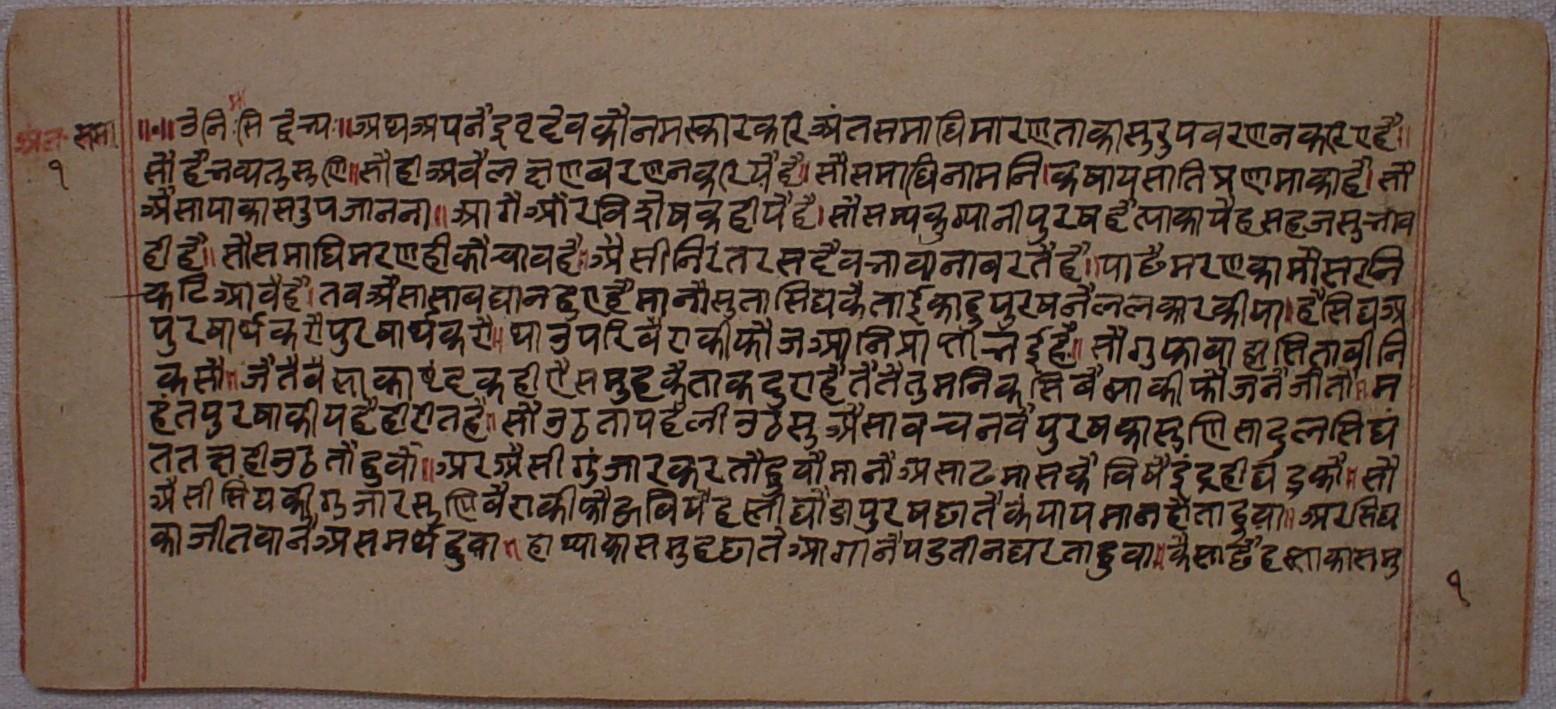 अंत समा
१
॥०॥ उँ नि सि द्देभ्यः॥ अथ अपनै इष्ट देव कौ नमस्कार करि अंत समाधि मारण ताका सुरुप वरणन करिए है॥
सौ है भव्य तु सुणि॥ सौ ही अवै लक्षण वरणन करियै है॥ सौ समाधि नाम नि। कषाय साति प्रणमा का है॥ सौ
अैसा याका सरुप जानना॥ आगै और विशेष कहीयै है। सौ सम्यक्ग्यानी पुरष है त्याका यैह सहज सुभाव
ही है॥ सौ समाधि मरण ही कौ चावहै॥ अैसी निरंतर सदैव भावना वरतै है॥ पाछै मरण का औसर नि
कटि आवै है। तव अैसा सावधान हुए है मानौ सुता सिंघ कै ताई काहु पुरष नै ललकार कीया। है सिंघ अ
पुरषार्थ करौ पुरषार्थ करौ॥ था उपरि वैरी की फौज आनि प्राप्ती भई है॥ सौ गुफा वाह्य सितावी नि
कसौ॥ जैतै वैरया का वृंद कही ऐ समुह कैताक दुरा है तैतै तुम निकसि वैरया की फौज नै जीतौ॥ म
हंत पुरषा की यहै ही रीत है॥ सौ उठता पहैली उठै सु अैसा वचन वै पुरष का सुणि सादुल सिंघ
ततक्षही उठतौ हुवो॥ अर अैसी गुंजार करतौ हुवौ मानौ असाढ मास कै विषै इंद्र ही घडूकौ॥ सौ
अैसी सिंघ की गुजार सुणि वैरी की फौज विषै हस्ती घौडा पुरष छा तै कंपायमान हौता हुवा॥ अर सिंघ
का जीतवानै असमर्थ हुवा॥ हाथ्या का समुह छा ते आगानै पडती न धरता हुवा॥ कैसा छै हस्ता का समु
१